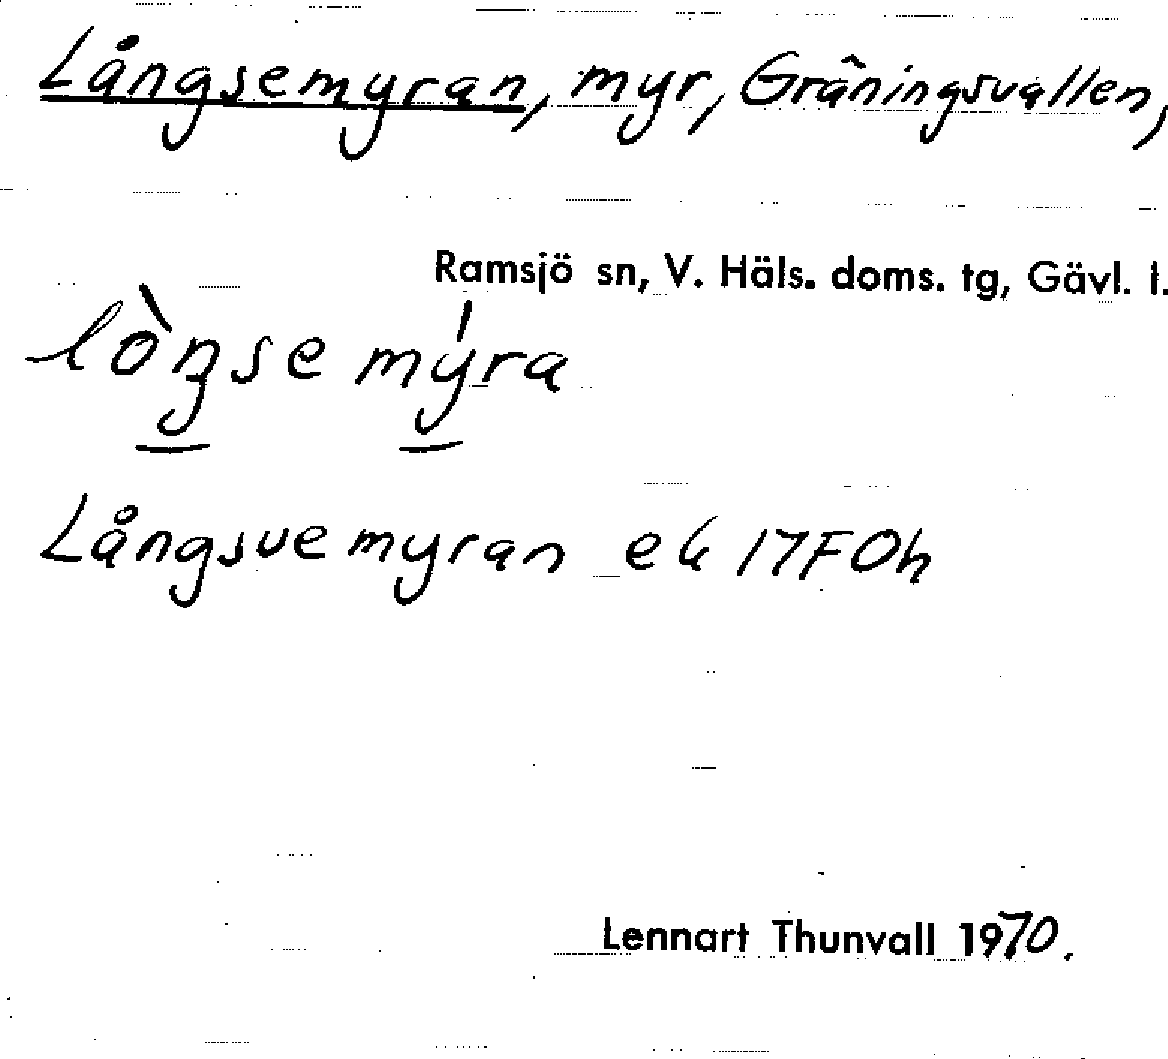 Långsemyran, myr, Gräningsvallen,
Ramsjö sn, V. Häls. doms. tg, Gävl. l.
lòŋse mýra
Långsvemyran ek 17F0h
Lennart Thunvall 1970.